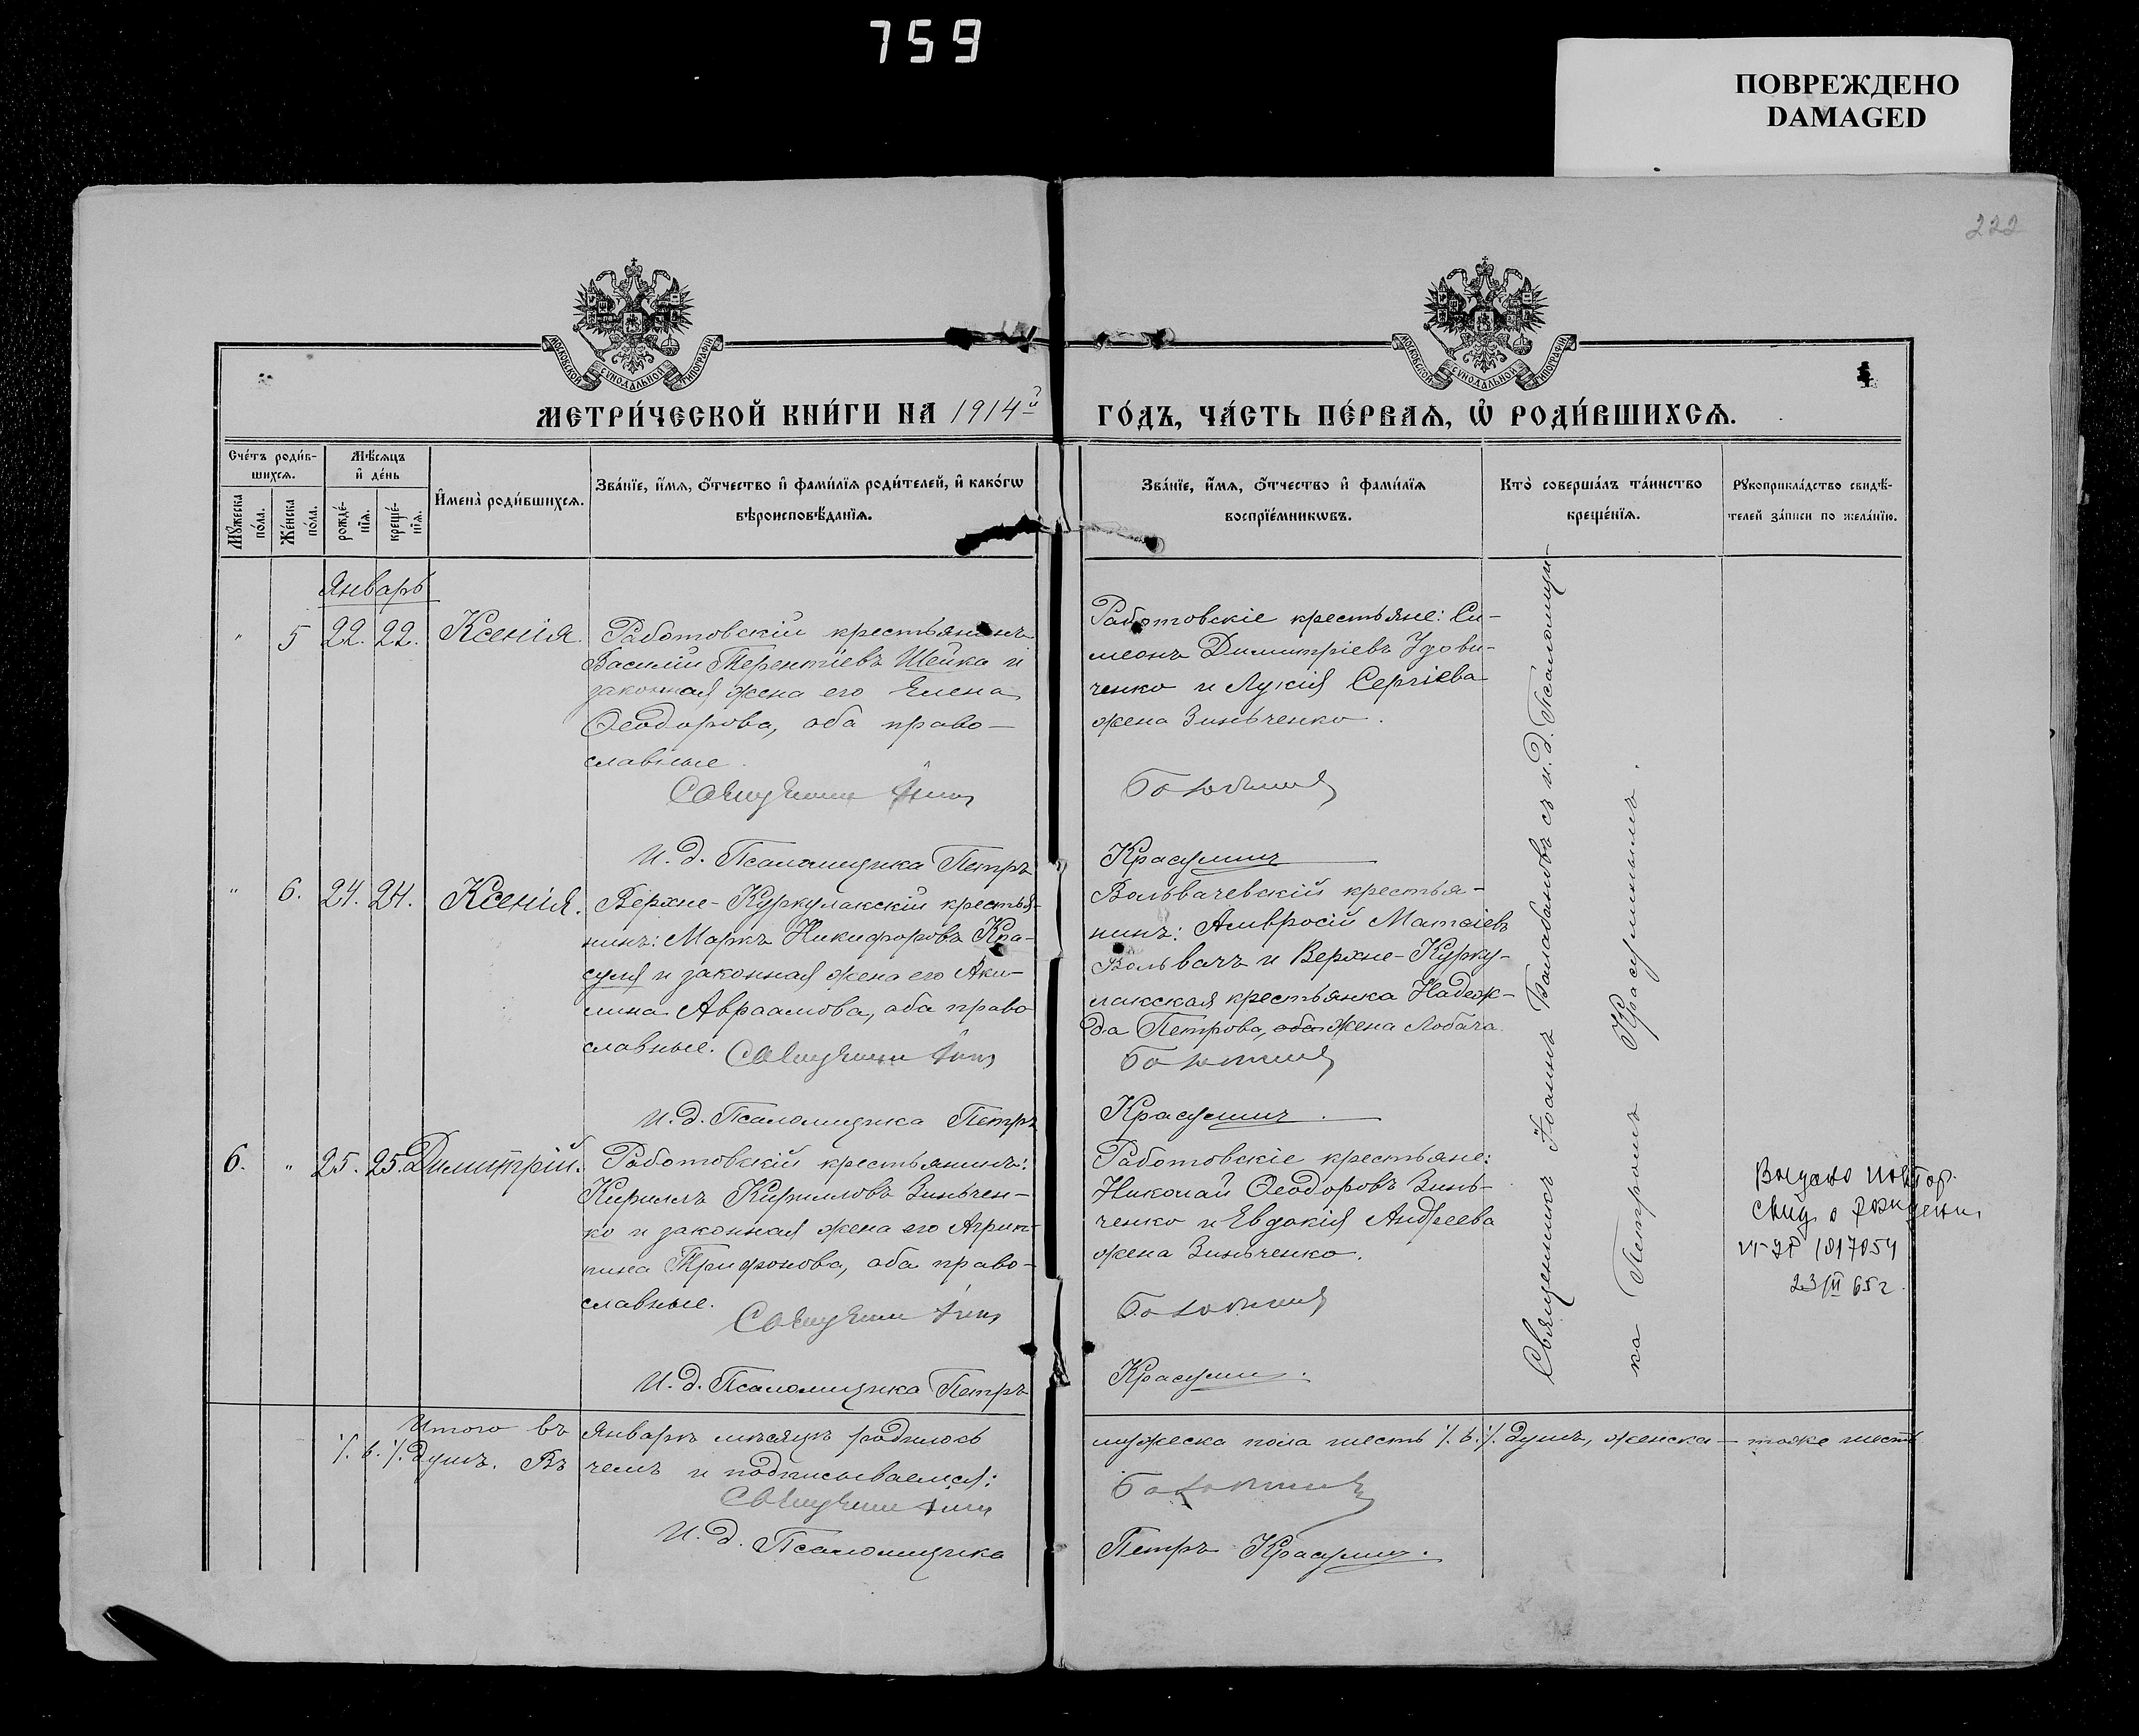 759
ПОВРЕЖДЕНО
DAMAGED
222
МОСКОВСКОЙ СѴНОДАЛЬНОЙ ТИПОГРАФІИ
МОСКОВСКОЙ СѴНОДАЛЬНОЙ ТИПОГРАФІИ
МЕТРИ́ЧЕСКОЙ КНИ́ГИ НА 1914й ГО́ДЪ, ЧА́СТЬ ПЕ́РВАѦ, Ѽ РОДИ́ВШИХСѦ.
Сче́тъ роди́в-
шихсѧ.
Мꙋ́жеска по́ла.
Же́нска по́ла.
Мѣ́сѧцъ
и҆ де́нь
рожде́-
нїѧ.
креще́-
нїѧ.
И҆мена̀ роди́вшихсѧ.
Зва́нїе, и҆́мѧ, ѻ҆́тчество и҆ фами́лїѧ роди́телей, и҆ како́гѡ
вѣроисповѣ́данїѧ.
Зва́нїе, и҆́мѧ, ѻ҆́тчество и҆ фами́лїѧ
воспрїе́мникѡвъ.
Кто̀ соверша́лъ та́инство
креще́нїѧ.
Рꙋкоприкла́дство свидѣ́-
телей за́писи по жела́нїю.
Январь
" 5 22. 22. Ксенія.
Работовскій крестьянинъ
Василій Терентіевъ Шейка и
законная жена его Елена
Ѳеодорова, оба право-
славные.
Священникъ Іоаннъ
И. д. Псаломщика Петръ
Работовскіе крестьяне: Си-
меонъ Димитріевъ Удови-
ченко и Лукія Сергіева
жена Зинъченко.
Балабановъ
Красулинъ
" 6. 24. 24. Ксенія.
Верхне-Куркулакскій крестья-
нинъ: Маркъ Никифоровъ Кра-
суля и законная жена его Аки-
лина Авраамова, оба право
славные. Священникъ Іоаннъ
И. д. Псаломщика Петръ
Вольвачевскій крестья-
нинъ: Амвросій Матѳіевъ
Вольвачъ и Верхне-Курку-
лакская крестьянка Надеж-
да Петрова, оба жена Лобача.
Балабановъ
Красулинъ.
6. " 25. 25. Димитрій.
Работовскій крестьянинъ:
Кириллъ Кирилловъ Зинъчен-
ко и законная жена его Агрип-
пина Трифонова, оба право-
славные.
Священникъ Іоаннъ
И. д. Псаломщика Петръ
Работовскіе крестьяне:
Николай Ѳеодоровъ Зинъ-
ченко и Евдокія Андреева
жена Зинъченко.
Балабановъ
Красулинъ.
Священникъ Іоаннъ Балабановъ съ и. д. Псаломщи-
ка Петромъ Красулинымъ.
Выдано повтор.
свид о рождении
1017054
23/II 65г.
Итого въ Январѣ мѣсяцѣ родилось мужеска пола шесть /.6./. душъ, женска - тоже шесть
/.6./. душъ. Въ чемъ и подписываемся:
Священникъ Іоаннъ Балабановъ
И. д. Псаломщика Петръ Красулинъ.